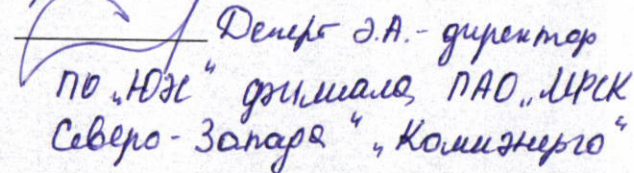 Деперт Э.А. - директор
ПО „ЮЭС“ филиала ПАО „МРСК
Северо-Запада“ „Комиэнерго“